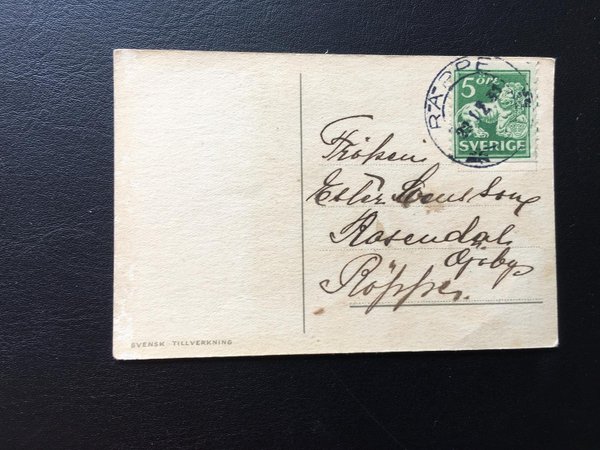 RÄPPE
5 ÖRE
SVERIGE
Fröken
Ester Svensson
Rosendal
Öjaby
Räppe.
SVENSK TILLVERKNING